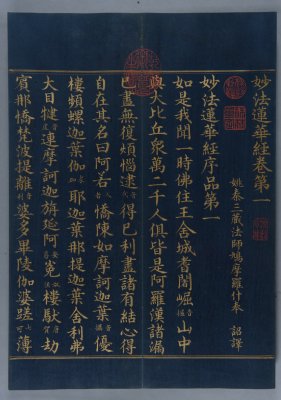 妙法蓮華經卷第一
姚秦三藏法師鳩摩羅什奉 詔譯
妙法蓮華經序品第一
如是我聞一時佛住王舍城耆闍崛山中
與大比丘衆萬二千人俱皆是阿羅漢諸漏
已盡無復煩惱逮得已利盡諸有結心得
自在其名曰阿若憍陳如摩訶迦葉優
樓頻螺迦葉伽耶迦葉那提迦葉舍利弗
大目揵連摩訶迦旃延阿㝹樓馱劫
賓那憍梵波提離婆多畢陵伽婆蹉薄